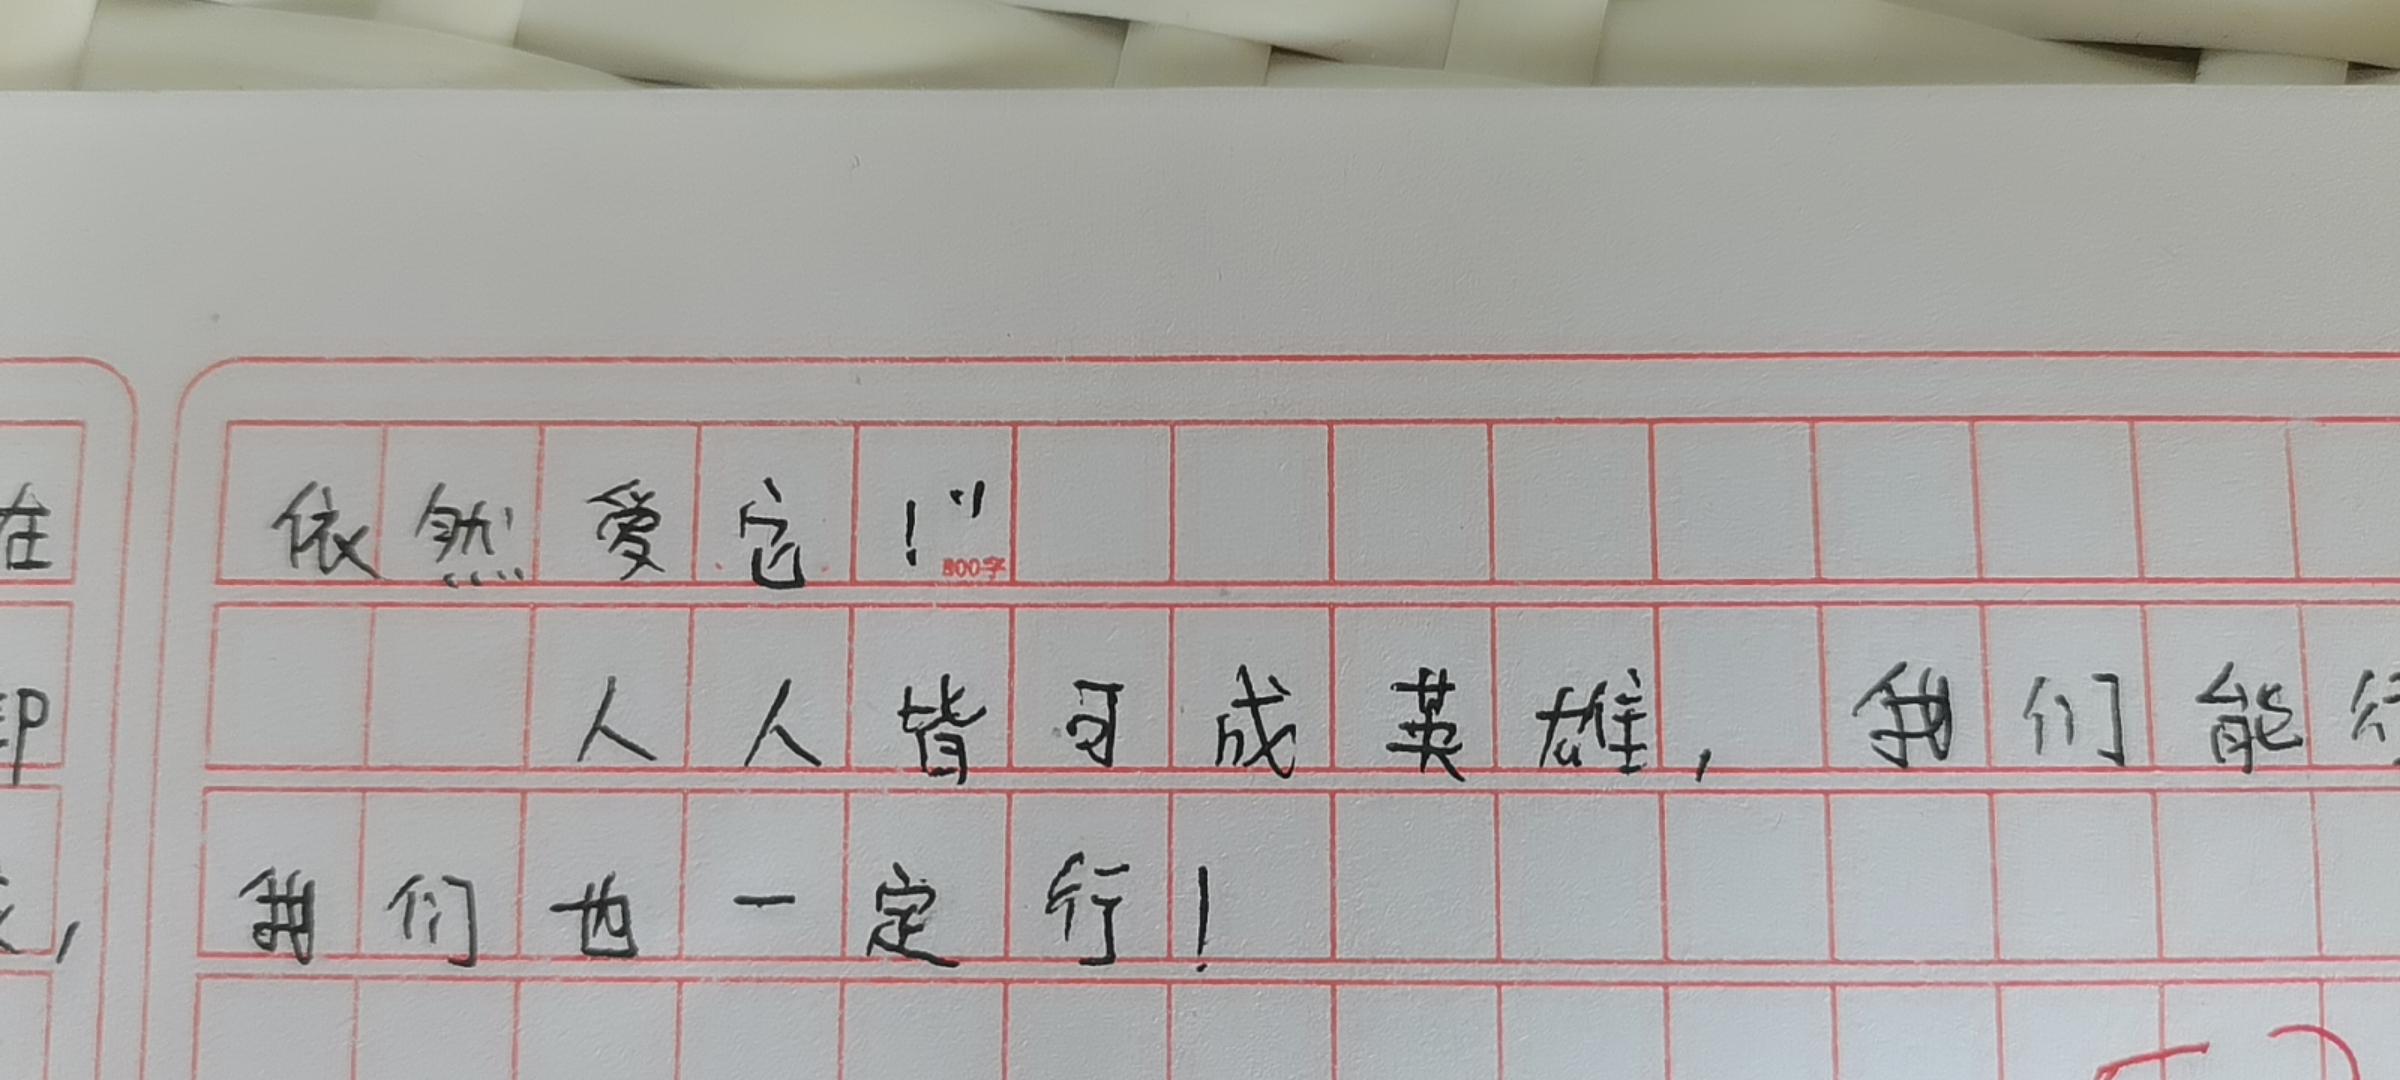 在
依然爱它！”
800字
人人皆可成英雄，我们能行
我们也一定行！